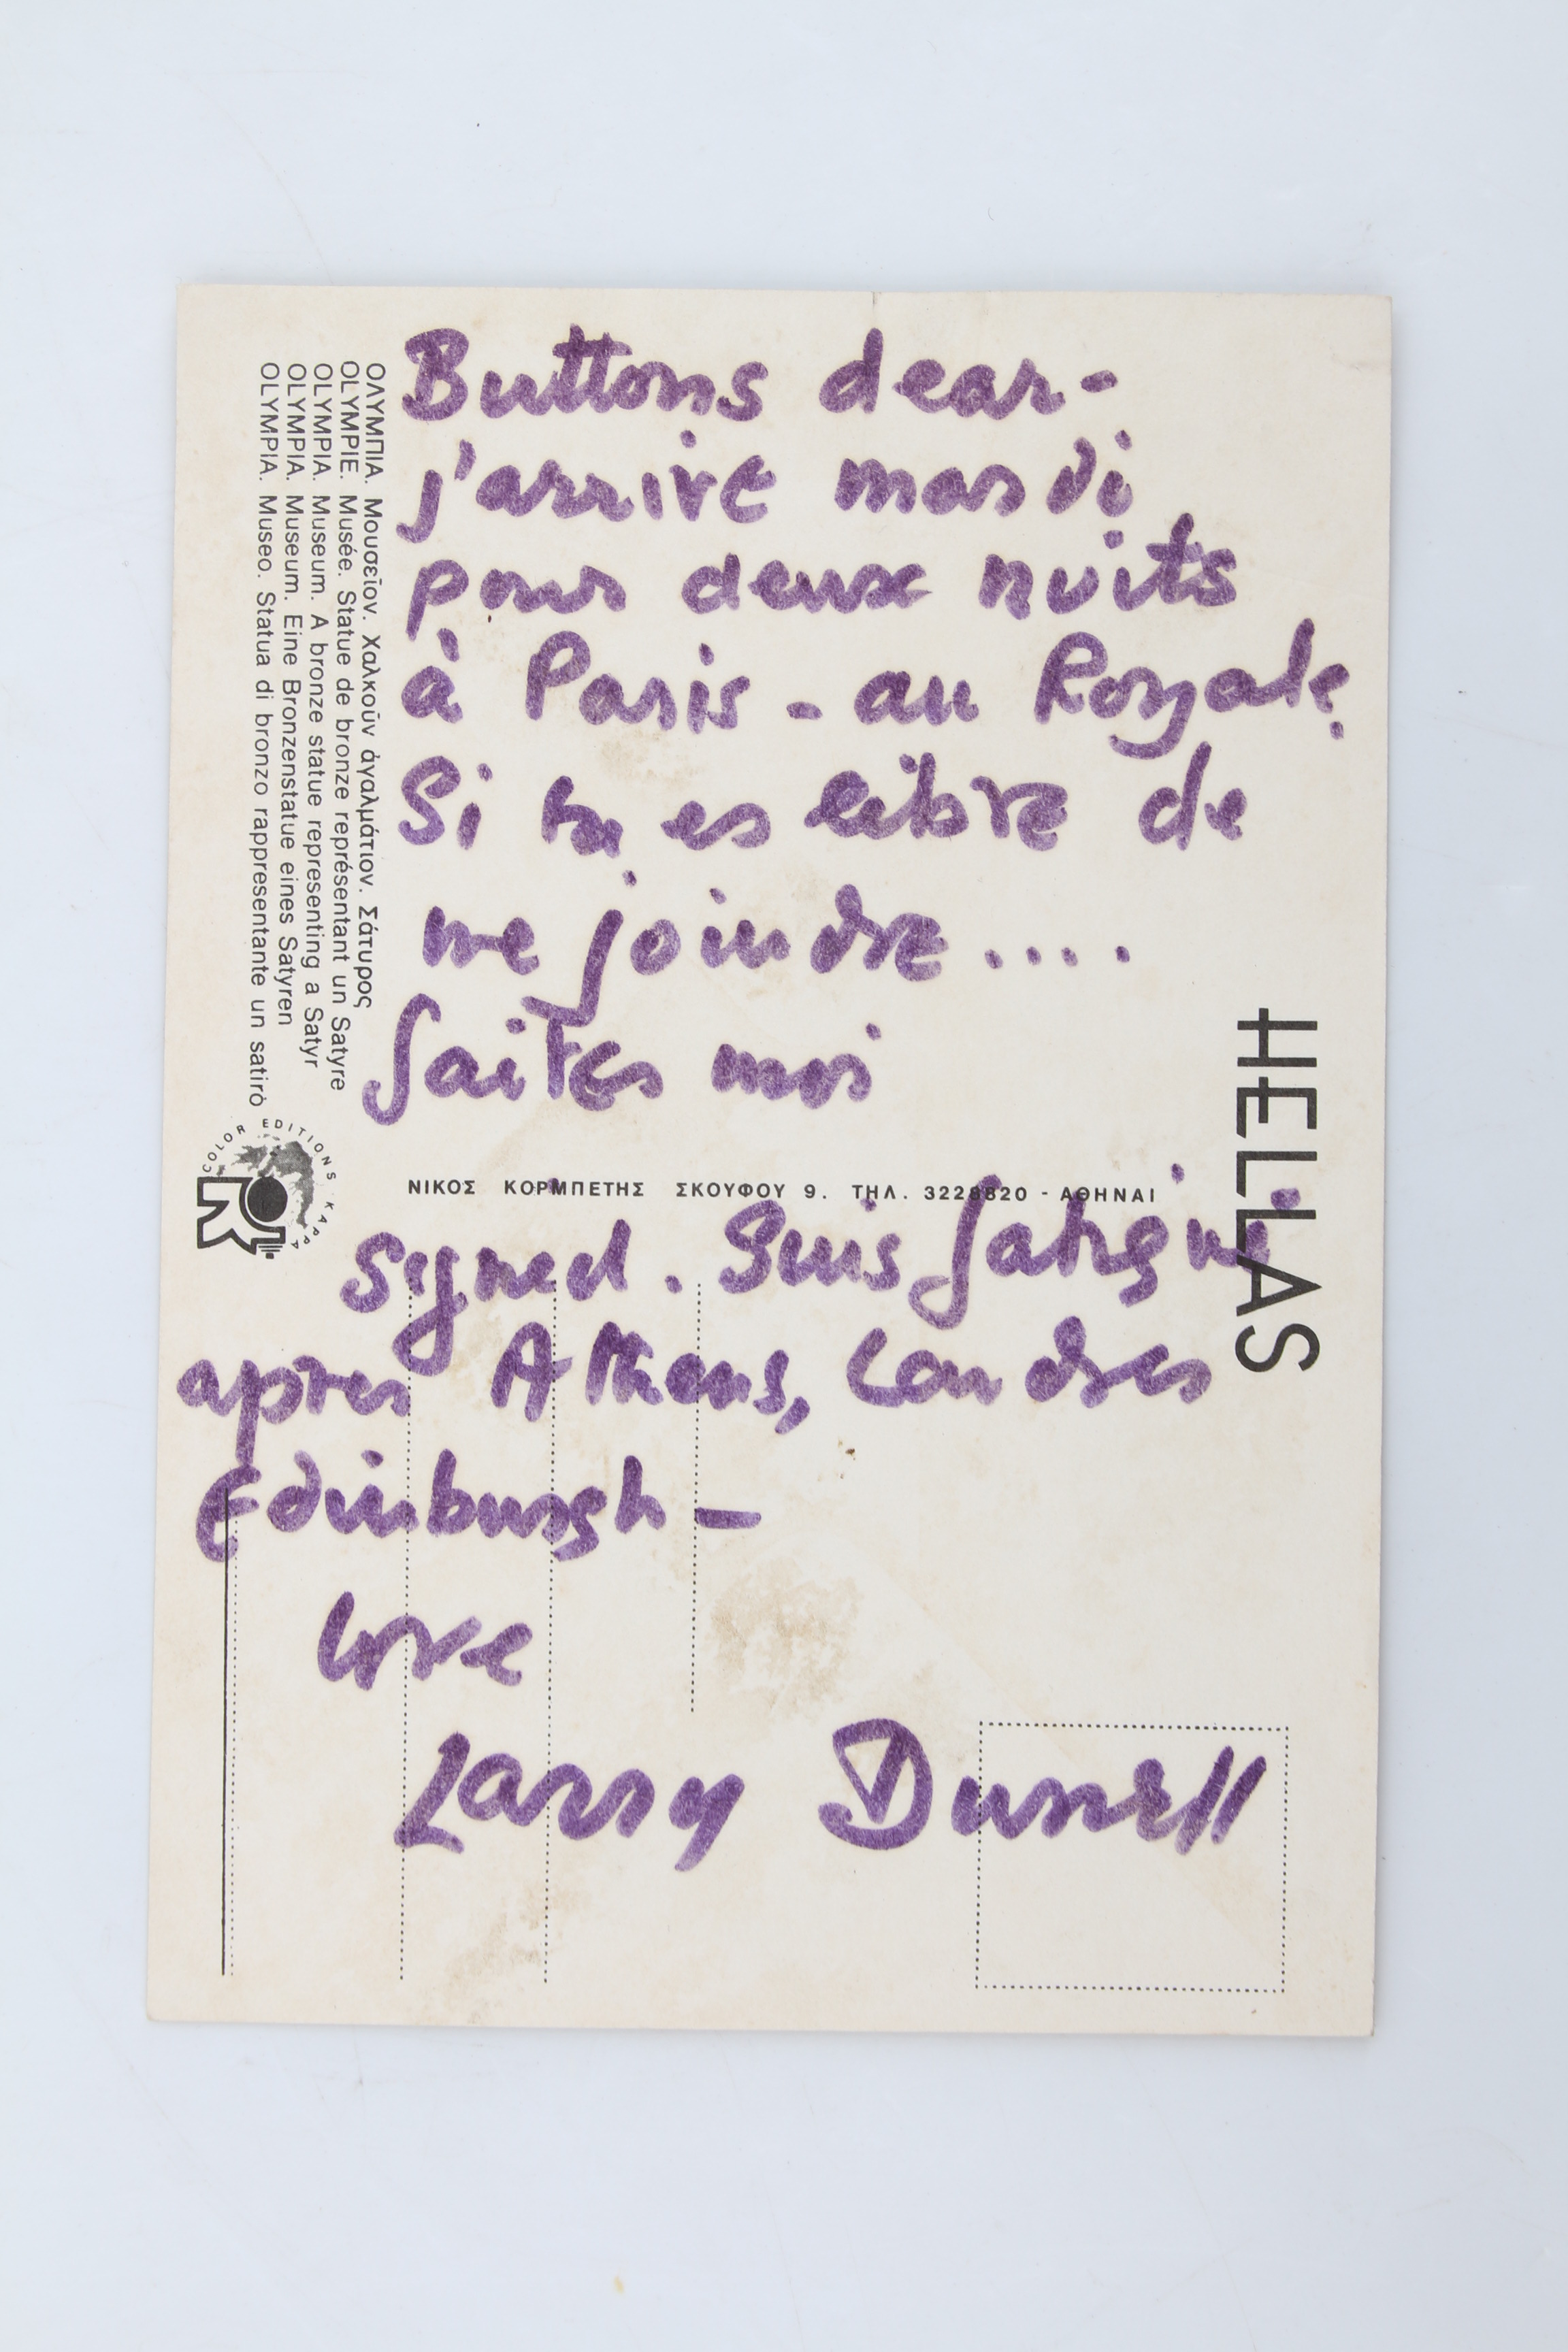 Buttons dear-
j'arrive mardi
pour deux nuits
à Paris - au Royale.
Si tu es libre de
me joindre ....
faites moi
signed. Suis fatigué
apres Athens, Londres
Edinburgh -
love
Larry Durrell
ΟΛΥΜΠΙΑ. Μουσεῖον. Χαλκοῦν ἀγαλμάτιον. Σάτυρος
OLYMPIE. Musée. Statue de bronze représentant un Satyre
OLYMPIA. Museum. A bronze statue representing a Satyr
OLYMPIA. Museum. Eine Bronzenstatue eines Satyren
OLYMPIA. Museo. Statua di bronzo rappresentante un satirò
COLOR EDITIONS KAPPA
K
ΝΙΚΟΣ ΚΟΡΜΠΕΤΗΣ ΣΚΟΥΦΟΥ 9. ΤΗΛ. 3228820 - ΑΘΗΝΑΙ
HELLAS